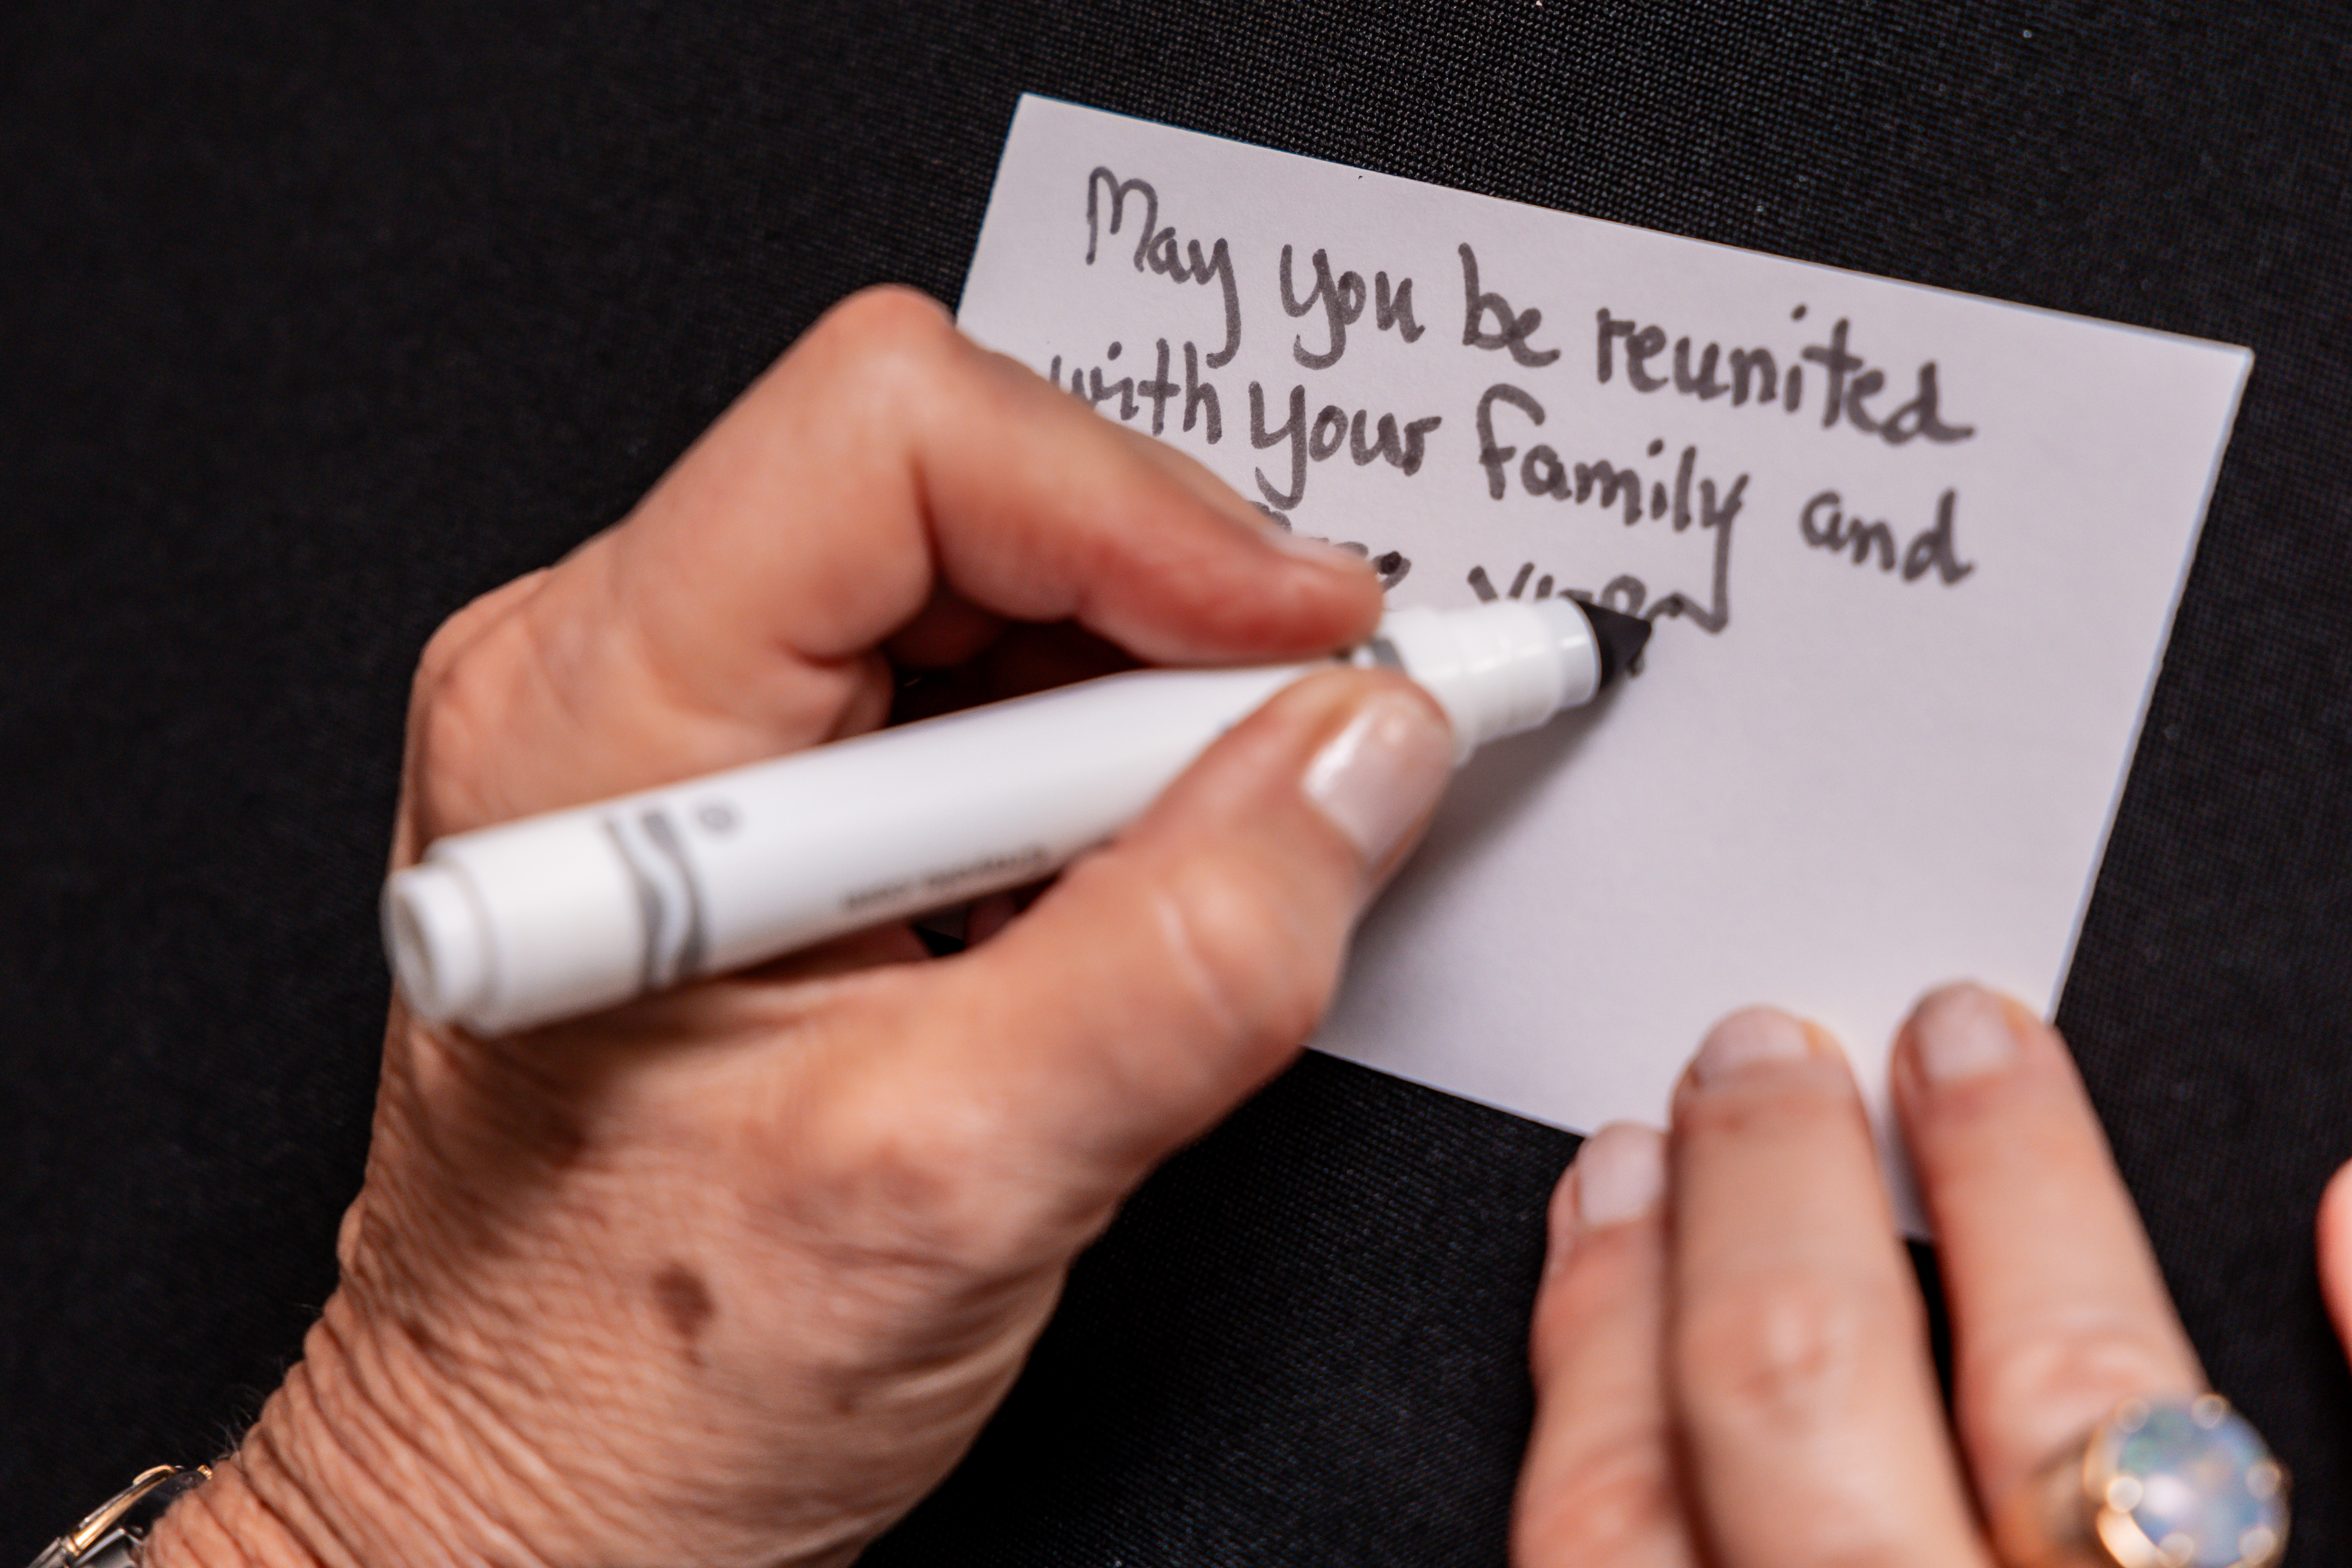 May you be reunited
with your family and